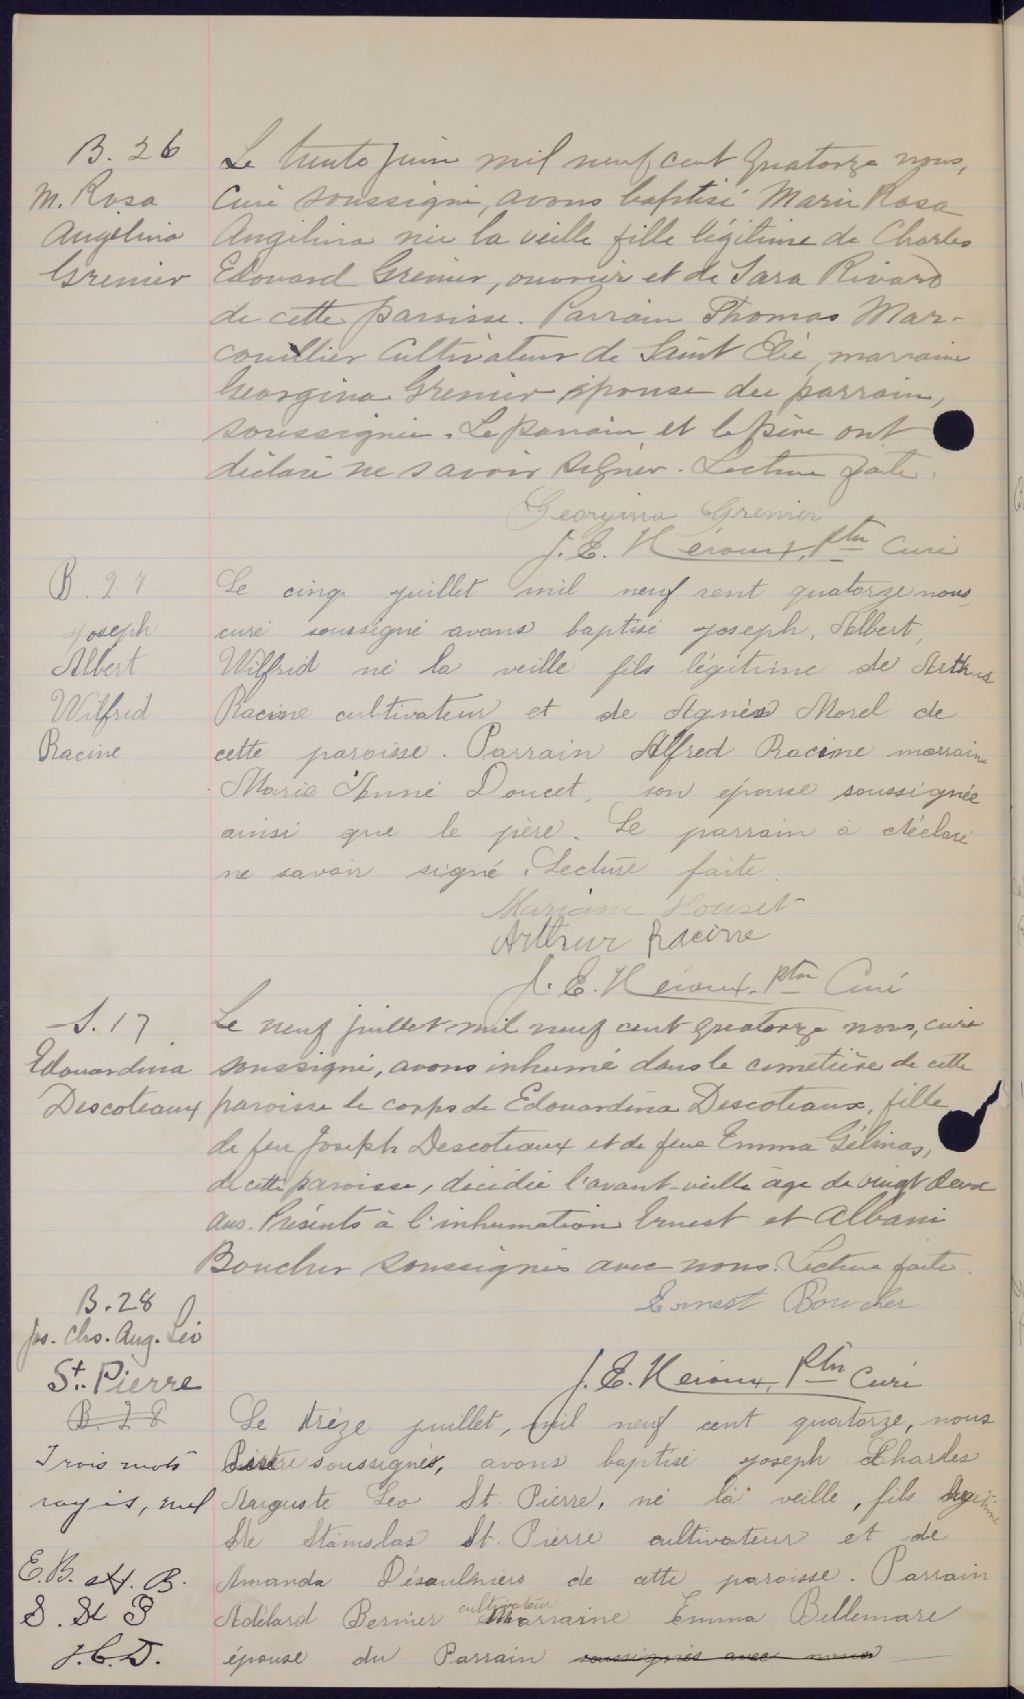 B. 26
M. Rosa
Angelina
Grenier
Le trente Juin mil neuf cent quatorze nous,
Curé soussigné, avons baptisé Marie Rosa
Angelina née la veille fille légitime de Charles
Edouard Grenier, ouvrier et de Sara Rivard
de cette paroisse. Parrain Thomas Mar-
couillier Cultivateur de Saint Elie, marraine
Georgina Grenier épouse du parrain,
soussignée. Le parrain et le père ont
déclaré ne savoir signer. Lecture faite.
Georgina Grenier
J. E. Héroux, Ptre Curé
B. 27
Joseph
Albert
Wilfrid
Racine
Le cinq juillet mil neuf cent quatorze nous,
curé soussigné avons baptisé Joseph, Albert,
Wilfrid né la veille fils légitime de Arthur
Racine cultivateur et de Agnès Morel de
cette paroisse. Parrain Alfred Racine marraine
Marie Anne Doucet, son épouse soussignée
ainsi que le père. Le parrain a déclaré
ne savoir signé. Lecture faite.
Arthur Racine
J. E. Héroux, Ptre Curé
S. 17
Edouardina
Descoteaux
Le neuf juillet mil neuf cent quatorze nous, curé
soussigné, avons inhumé dans le cimetière de cette
paroisse le corps de Edouardina Descoteaux, fille
de feu Joseph Descoteaux et de feue Emma Gélinas,
de cette paroisse, décédée l'avant-veille âgé de vingt deux
ans. Présents à l'inhumation Ernest et Albani
Boucher soussignés avec nous. Lecture faite.
Ernest Boucher
J. E. Héroux, Ptre Curé
B. 28
Jos. Chs. Aug. Léo
St. Pierre
B. 28
Trois mots
rayés, nul
E. B. A. B.
S. St P
J. C. D.
Le treize juillet, mil neuf cent quatorze, nous
soussigné, avons baptisé Joseph Charles
Auguste Leo St. Pierre, né la veille, fils légitime
de Stanislas St. Pierre cultivateur et de
Amanda Désaulniers de cette paroisse. Parrain
Adélard Bernier cultivateur Marraine Emma Bellemare
épouse du Parrain soussignés avec nous